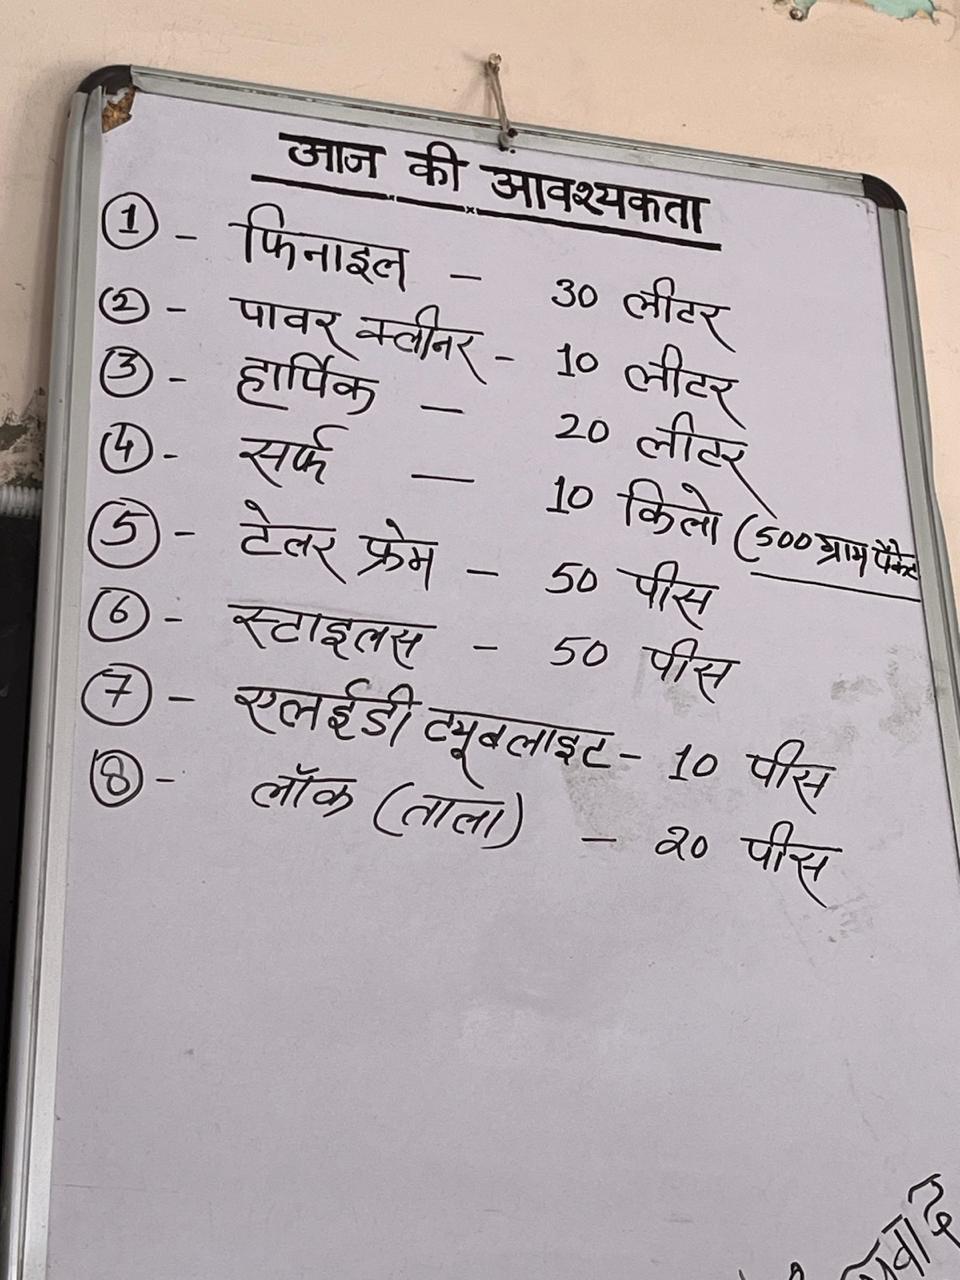 आज की आवश्यकता
① - फिनाइल - 30 लीटर
② - पावर क्लीनर - 10 लीटर
③ - हार्पिक - 20 लीटर
④ - सर्फ - 10 किलो (500 ग्राम पैकेट
⑤ - टेलर फ्रेम - 50 पीस
⑥ - स्टाइलस - 50 पीस
⑦ - एलईडी ट्यूबलाइट - 10 पीस
⑧ - लॉक (ताला) - 20 पीस